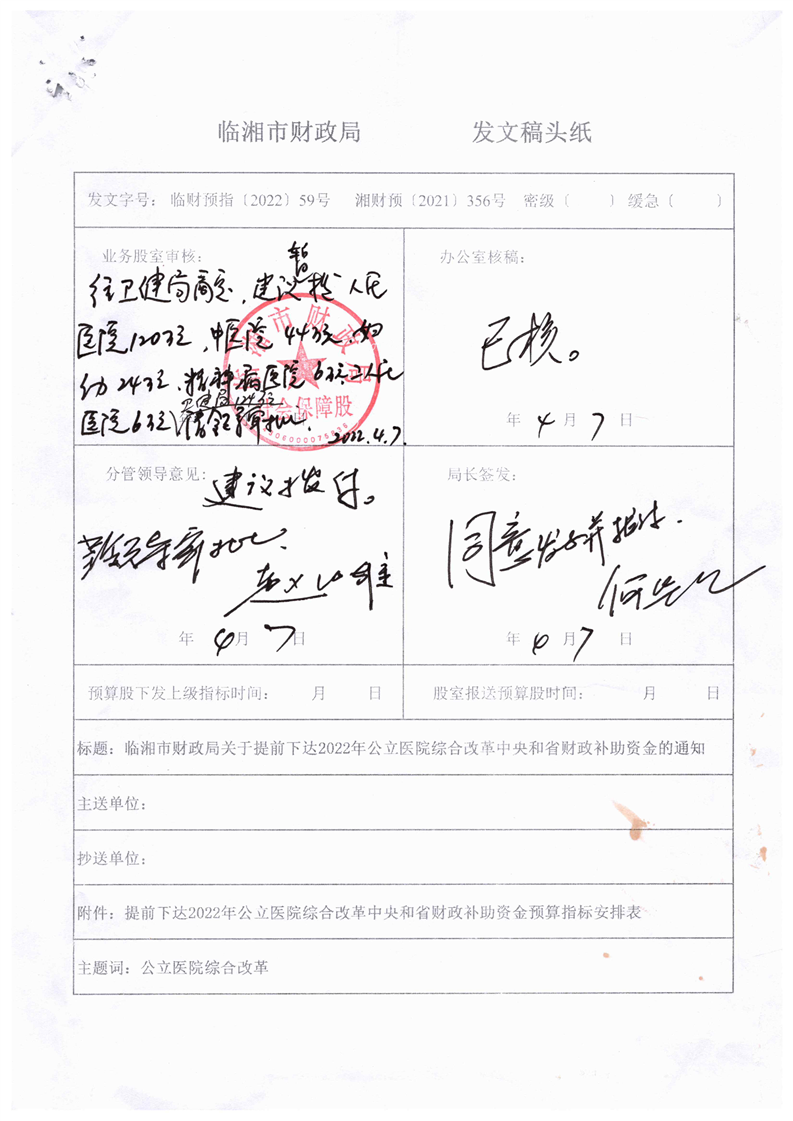 临湘市财政局 发文稿头纸
发文字号: 临财预指〔2022〕59号 湘财预〔2021〕356号 密级〔 〕缓急〔 〕
业务股室审核:
暂
卫健局商定,建议拨人民
医院120万元,中医院44万元,妇
幼24万元,精神病医院6万元,二人民
医院6万元
2022.4.7.
临湘市财政局
社会保障股
办公室核稿:
已核。
年 4 月 7 日
分管领导意见:
建议拨付。
年 4 月 7 日
局长签发:
同意发文并拨付.
年 4 月 7 日
预算股下发上级指标时间: 月 日
股室报送预算股时间: 月 日
标题: 临湘市财政局关于提前下达2022年公立医院综合改革中央和省财政补助资金的通知
主送单位:
抄送单位:
附件: 提前下达2022年公立医院综合改革中央和省财政补助资金预算指标安排表
主题词: 公立医院综合改革